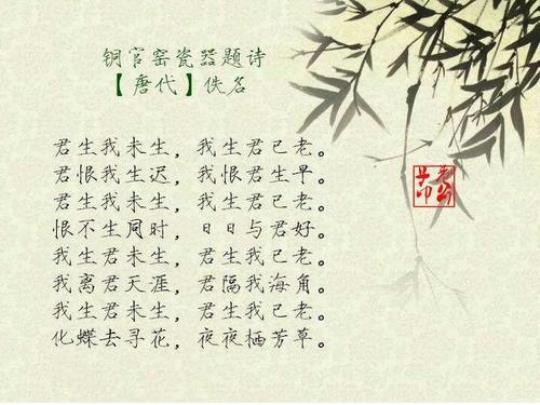 铜官窑瓷器题诗
【唐代】佚名
君生我未生，我生君已老。
君恨我生迟，我恨君生早。
君生我未生，我生君已老。
恨不生同时，日日与君好。
我生君未生，君生我已老。
我离君天涯，君隔我海角。
我生君未生，君生我已老。
化蝶去寻花，夜夜栖芳草。